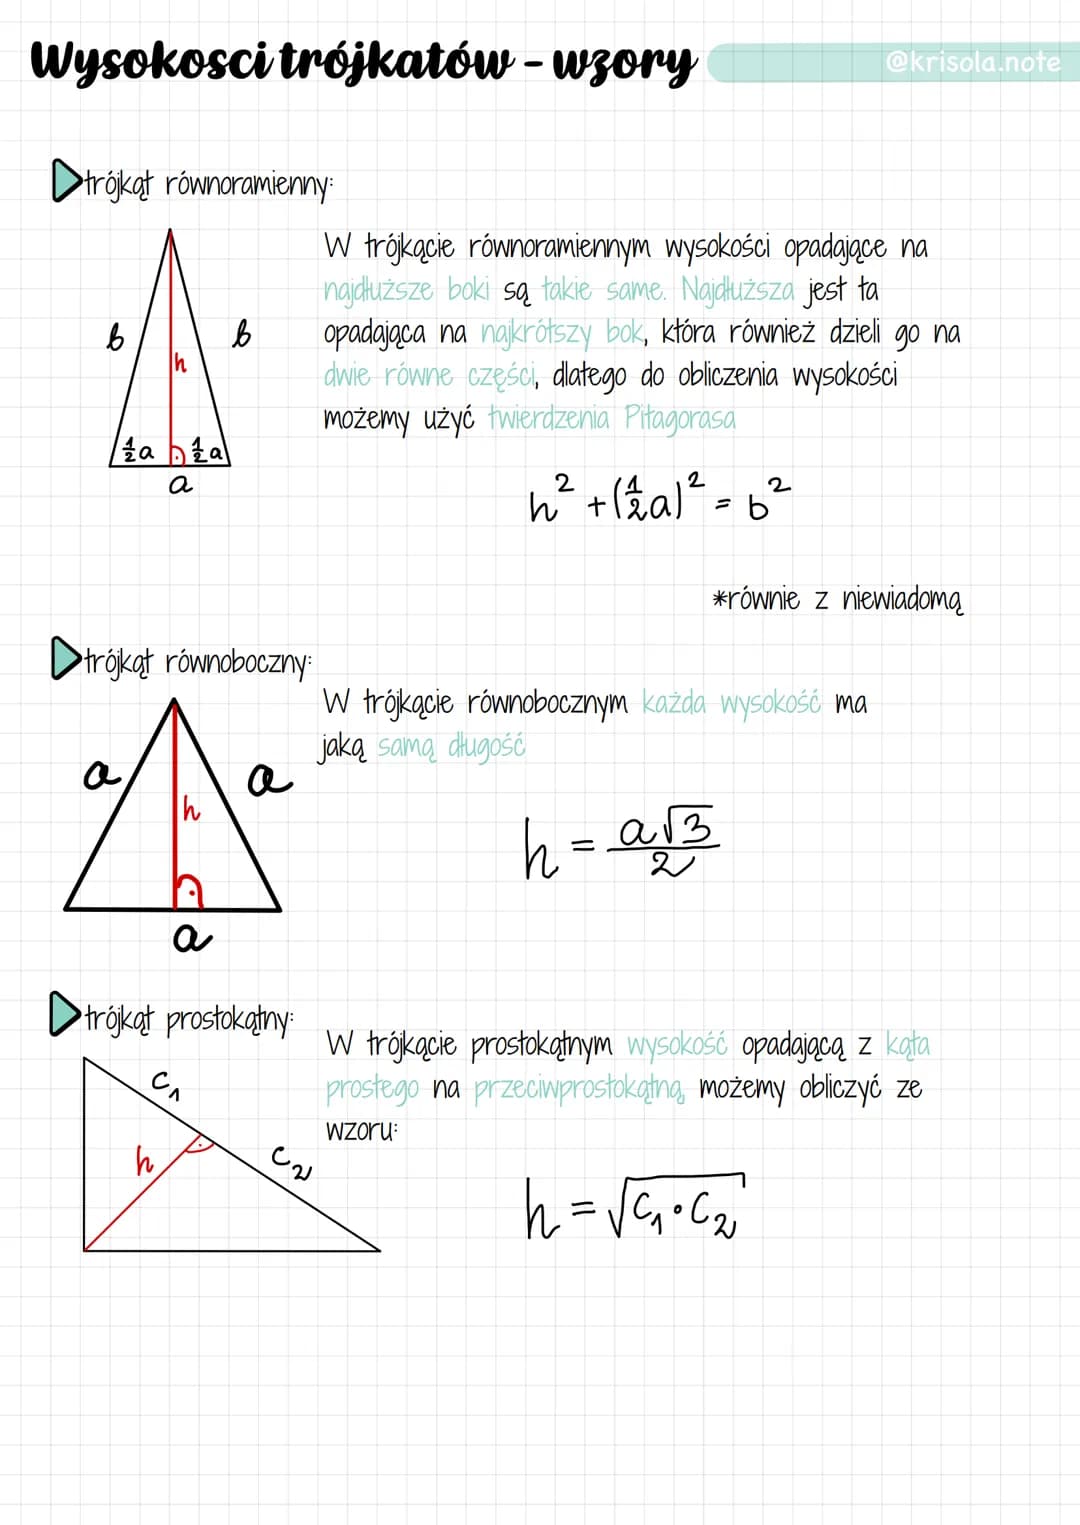 Wysokosci trójkatów - wzory
@krisola.note
trójkąt równoramienny:
W trójkącie równoramiennym wysokości opadające na
najdłuższe boki są takie same. Najdłuższa jest ta
opadająca na najkrótszy bok, która również dzieli go na
dwie równe części, dlatego do obliczenia wysokości
możemy użyć twierdzenia Pitagorasa
b
b
h
½a
½a
a
h² + (½a)² = b²
*równie z niewiadomą
trójkąt równoboczny:
W trójkącie równobocznym każda wysokość ma
jaką samą długość
a
a
h
a
h = a√3/2
trójkąt prostokątny:
W trójkącie prostokątnym wysokość opadającą z kąta
prostego na przeciwprostokątną, możemy obliczyć ze
wzoru:
c₁
h
c₂
h = √c₁·c₂